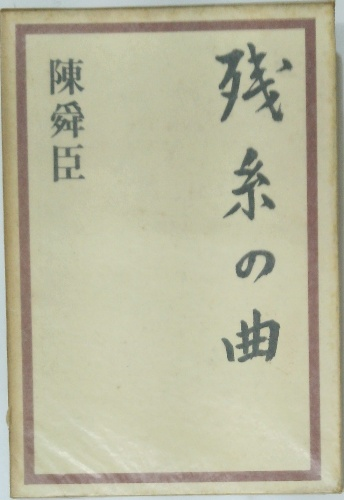 残糸の曲
陳舜臣